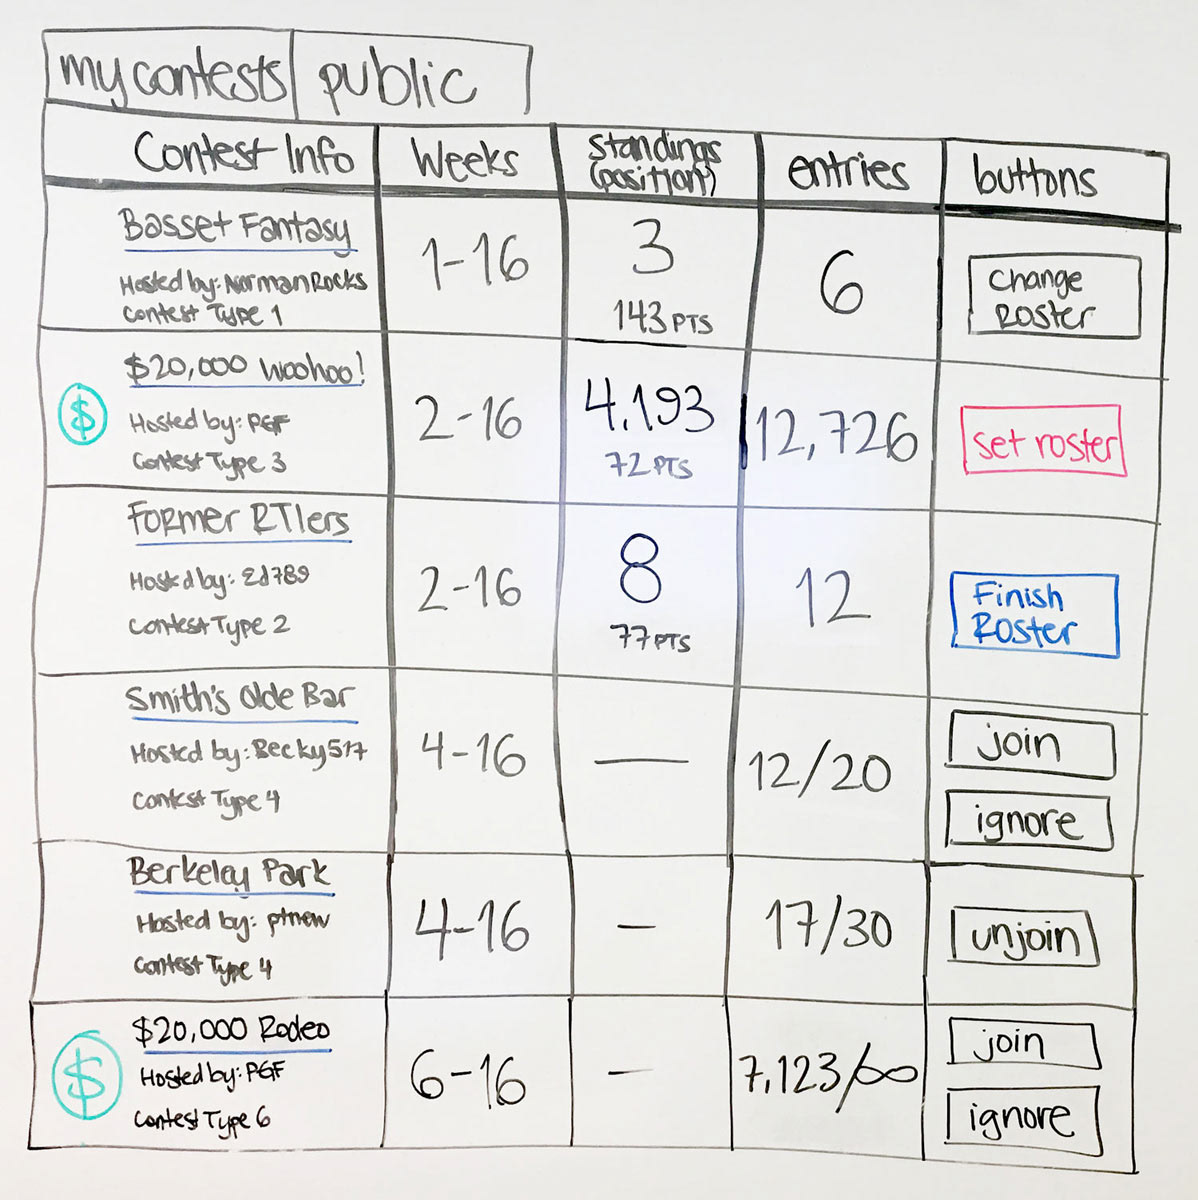 my contests public
Contest Info Weeks Standings (position) entries buttons
Basset Fantasy
Hosted by: NormanRocks
Contest Type 1
1-16
3
143 PTS
6
Change
Roster
$
$20,000 Woohoo!
Hosted by: PGF
Contest Type 3
2-16
4,193
72 PTS
12,726
set roster
Former RTIers
Hosted by: Ed789
Contest Type 2
2-16
8
77 PTS
12
Finish
Roster
Smith's Olde Bar
Hosted by: Becky517
Contest Type 4
4-16
—
12/20
join
ignore
Berkeley Park
Hosted by: ptnew
Contest Type 4
4-16
—
17/30
unjoin
$
$20,000 Rodeo
Hosted by: PGF
Contest Type 6
6-16
—
7,123/∞
join
ignore